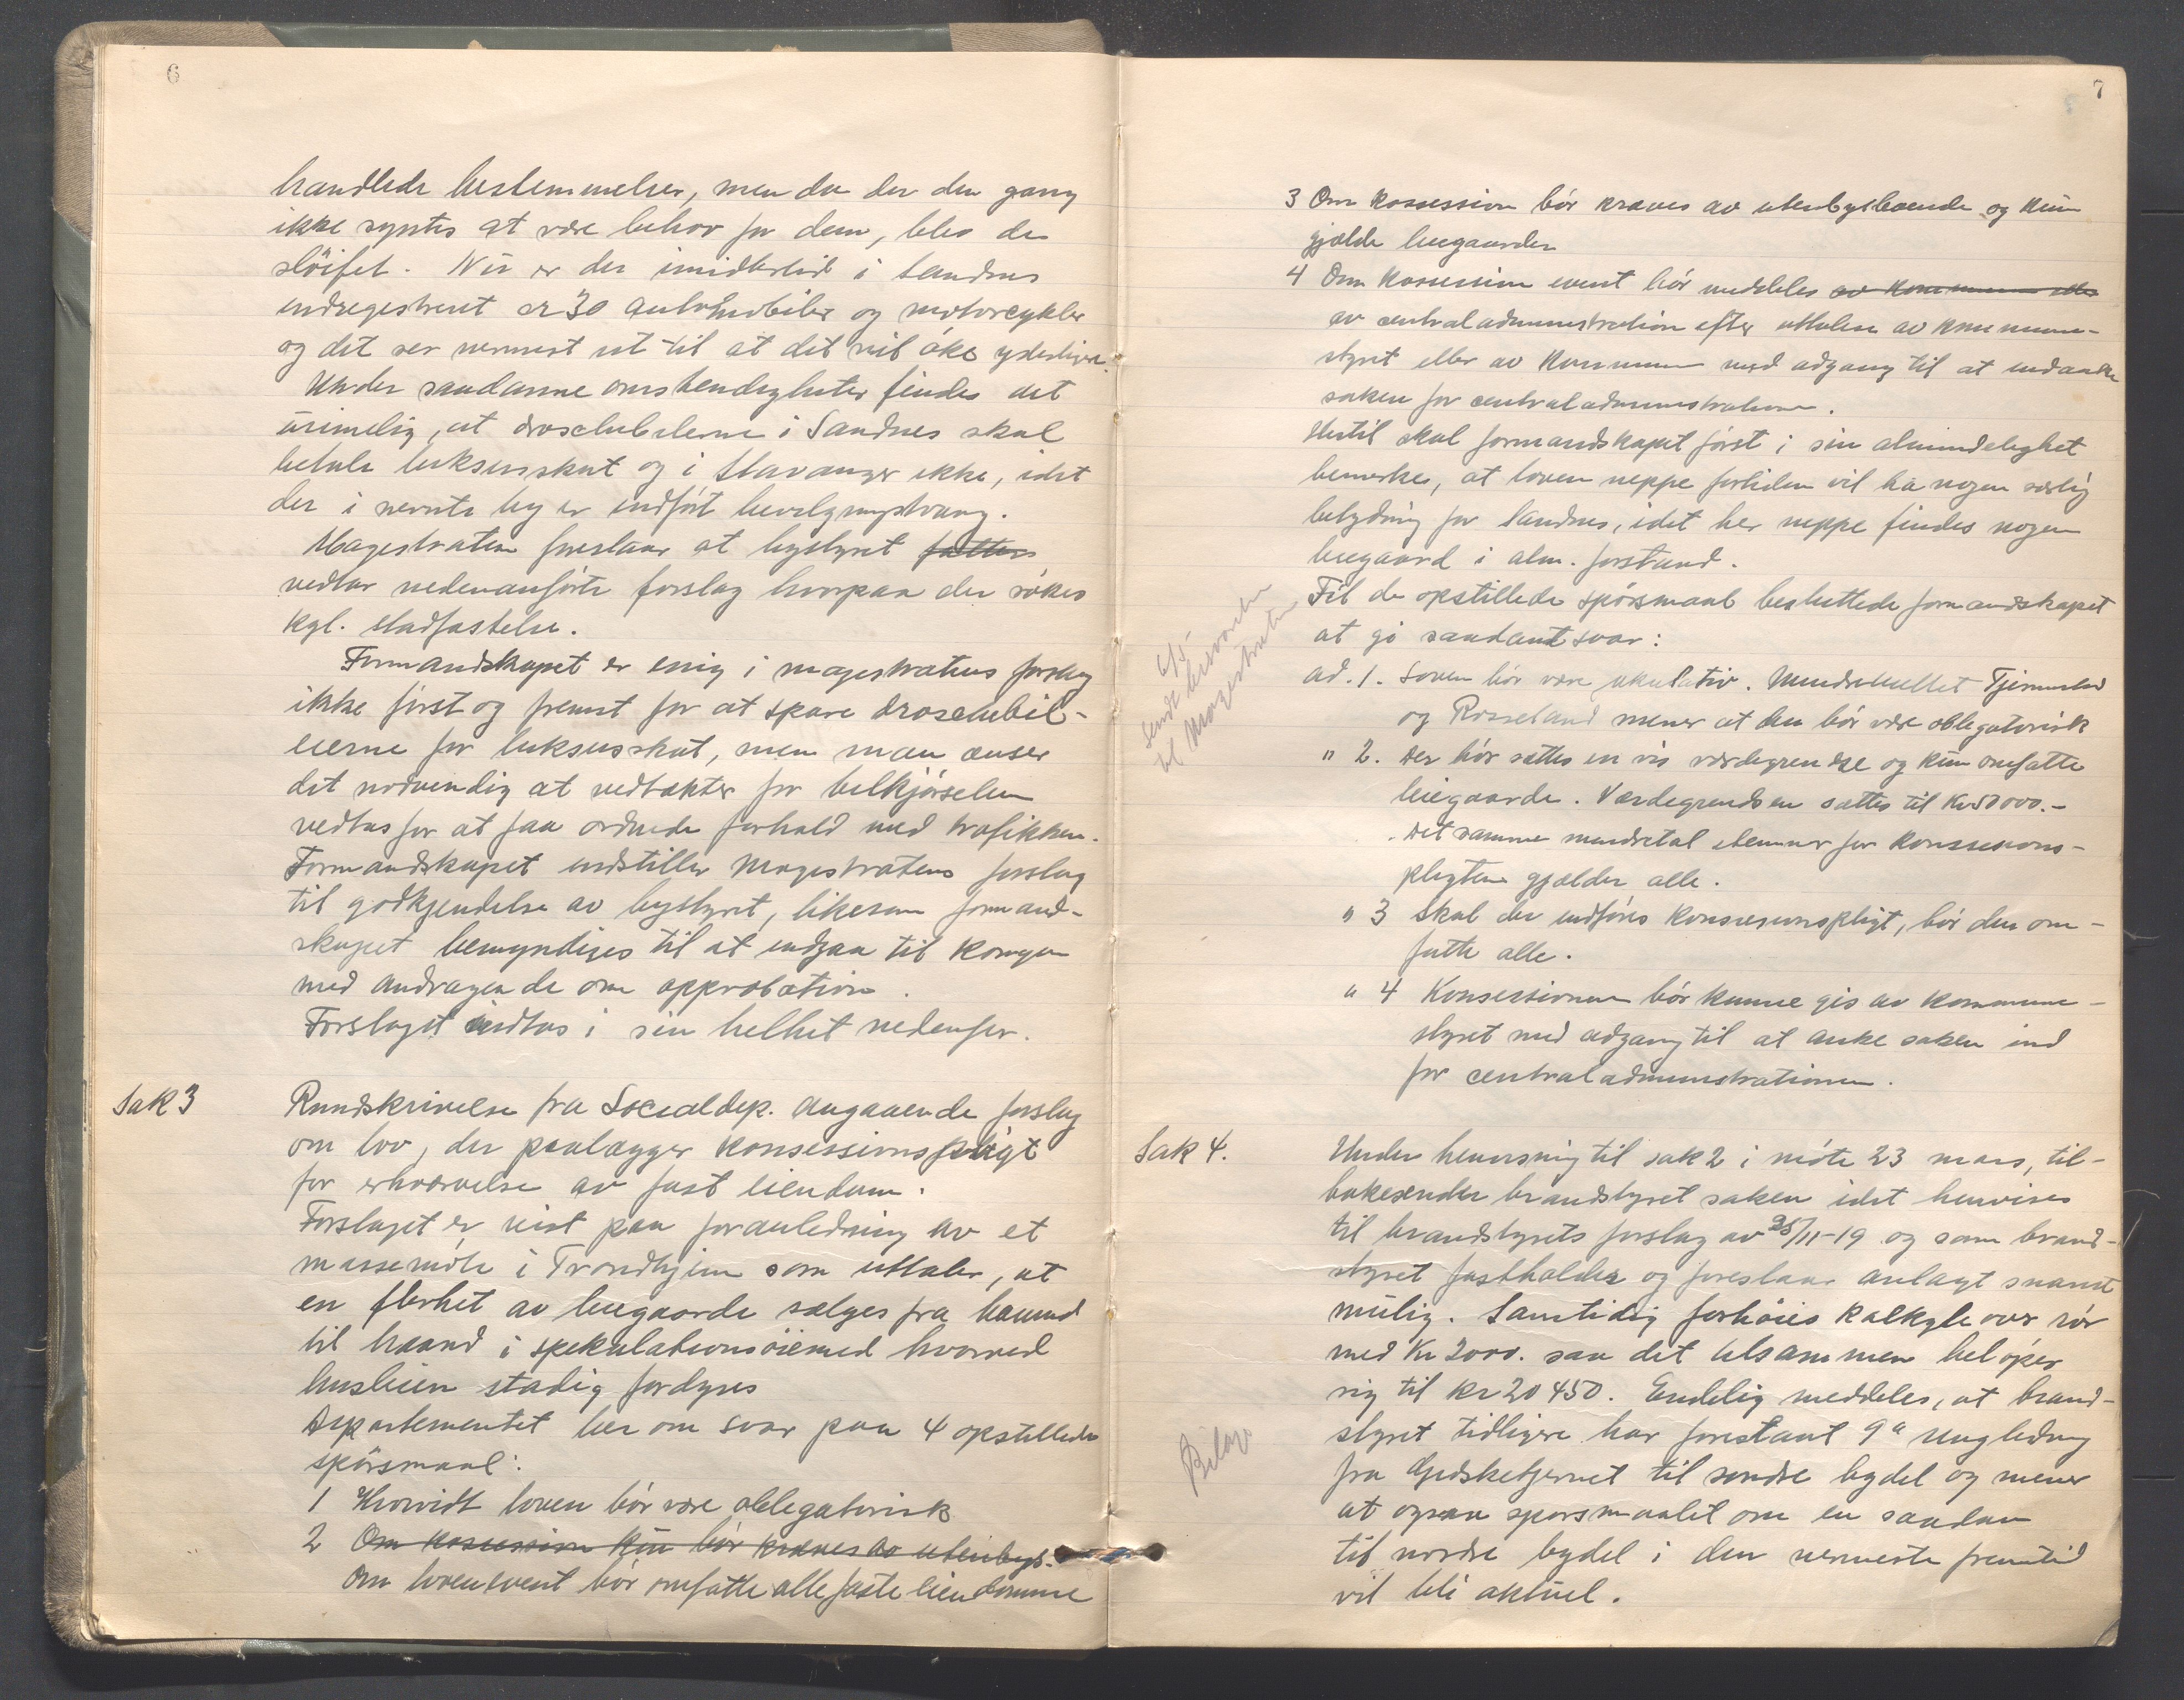 6
handlede bestemmelser, men da der den gang
ikke syntes at være behov for dem, blev de
slöifet. Nu er der imidlertid i Sandnes
indregistrert ca 30 automobiler og motorcykler
og det ser nermest ut til at det vil öke yderligere.
Under saadanne omstendigheter findes det
urimelig, at droschebilerne i Sandnes skal
betale luksusskat og i Stavanger ikke, idet
der i nevnte by er indfört bevilgningstvang.
Magistraten foreslaar at bystyret fatter
vedtar nedenanförte forslag hvorpaa der sökes
kgl. stadfæstelse.
Formandskapet er enig i magistratens forslag
ikke först og fremst for at spare droschebil-
eierne for luksusskat, men man anser
det nödvendig at vedtækter for bilkjörselen
vedtas for at faa ordnede forhold med trafikken.
Formandskapet indstiller Magistratens forslag
til godkjendelse av bystyret, likesom formand-
skapet bemyndiges til at indgaa til Kongen
med andragende om approbation.
Forslaget indtas i sin helhet nedenfor.
Sak 3
Rundskrivelse fra Socialdep. angaaende forslag
om lov, der paalægger konsessionspligt
for erhvervelse av fast eiendom.
Forslaget er reist paa foranledning av et
massemöte i Trondhjem som uttaler, at
en flerhet av leiegaarde sælges fra haand
til haand i spekulationsöiemed hvorved
husleien stadig fordyres
Departementet ber om svar paa 4 opstillede
spörsmaal:
1 Hvorvidt loven bör være obligatorisk
2 Om konsession kun bör kræves av utenbys-
Om loven event bör omfatte alle faste eiendomme
7
3 Om konsession bör kræves av utenbysboende og kun
gjælde leiegaarder
4 Om konsession event bör meddeles av kommunen eller
av centraladministration efter uttalelse av kommune-
styret eller av kommunen med adgang til at indanke
saken for centraladministrationen.
Hertil skal formandskapet först i sin almindelighet
bemerke, at loven neppe fortiden vil ha nogen særlig
betydning for Sandnes, idet her neppe findes nogen
leiegaard i alm. forstand.
Til de opstillede spörsmaal besluttede formandskapet
at gi saadant svar:
6/5
Sendt besvarelse
til Magistraten
ad. 1. Loven bör være fakultativ. Mindretallet Tjemsland
og Rosseland mener at den bör være obligatorisk
" 2. Der bör sættes en vis værdegrendse og kun omfatte
leiegaarde. Værdegrendsen sættes til Kr 50 000.-
Det samme mindretal stemmer for konsesions-
pligten gjælder alle.
" 3 Skal der indföres konsesionspligt, bör den om-
fatte alle.
" 4 Konsessionen bör kunne gis av kommune-
styret med adgang til at anke saken ind
for centraladministrationen.
Sak 4.
Under henvisning til sak 2 i möte 23 mars, til-
bakesender brandstyret saken idet henvises
til brandstyrets forslag av 25/11-19 og som brand-
styret fastholder og foreslaar anlagt snarest
mulig. Samtidig forhöies kalkyle over rör
med Kr 2000. saa det tilsammen belöper
sig til kr 20 450. Endelig meddeles, at brand-
styret tidligere har forestaat 9" ringledning
Bilag
fra Gjedsketjernet til söndre bydel og mener
at ogsaa spörsmaalet om en saadan
til nordre bydel i den nermeste fremtid
vil bli aktuel.